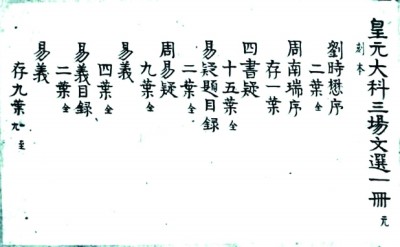 皇元大科三場文選一冊 元
刻本
劉時懋序
二葉全
周南瑞序
存一葉
四書疑
十五葉全
易疑題目録
二葉全
周易疑
九葉全
易義
四葉全
易義目録
二葉全
易義
存九葉 至九